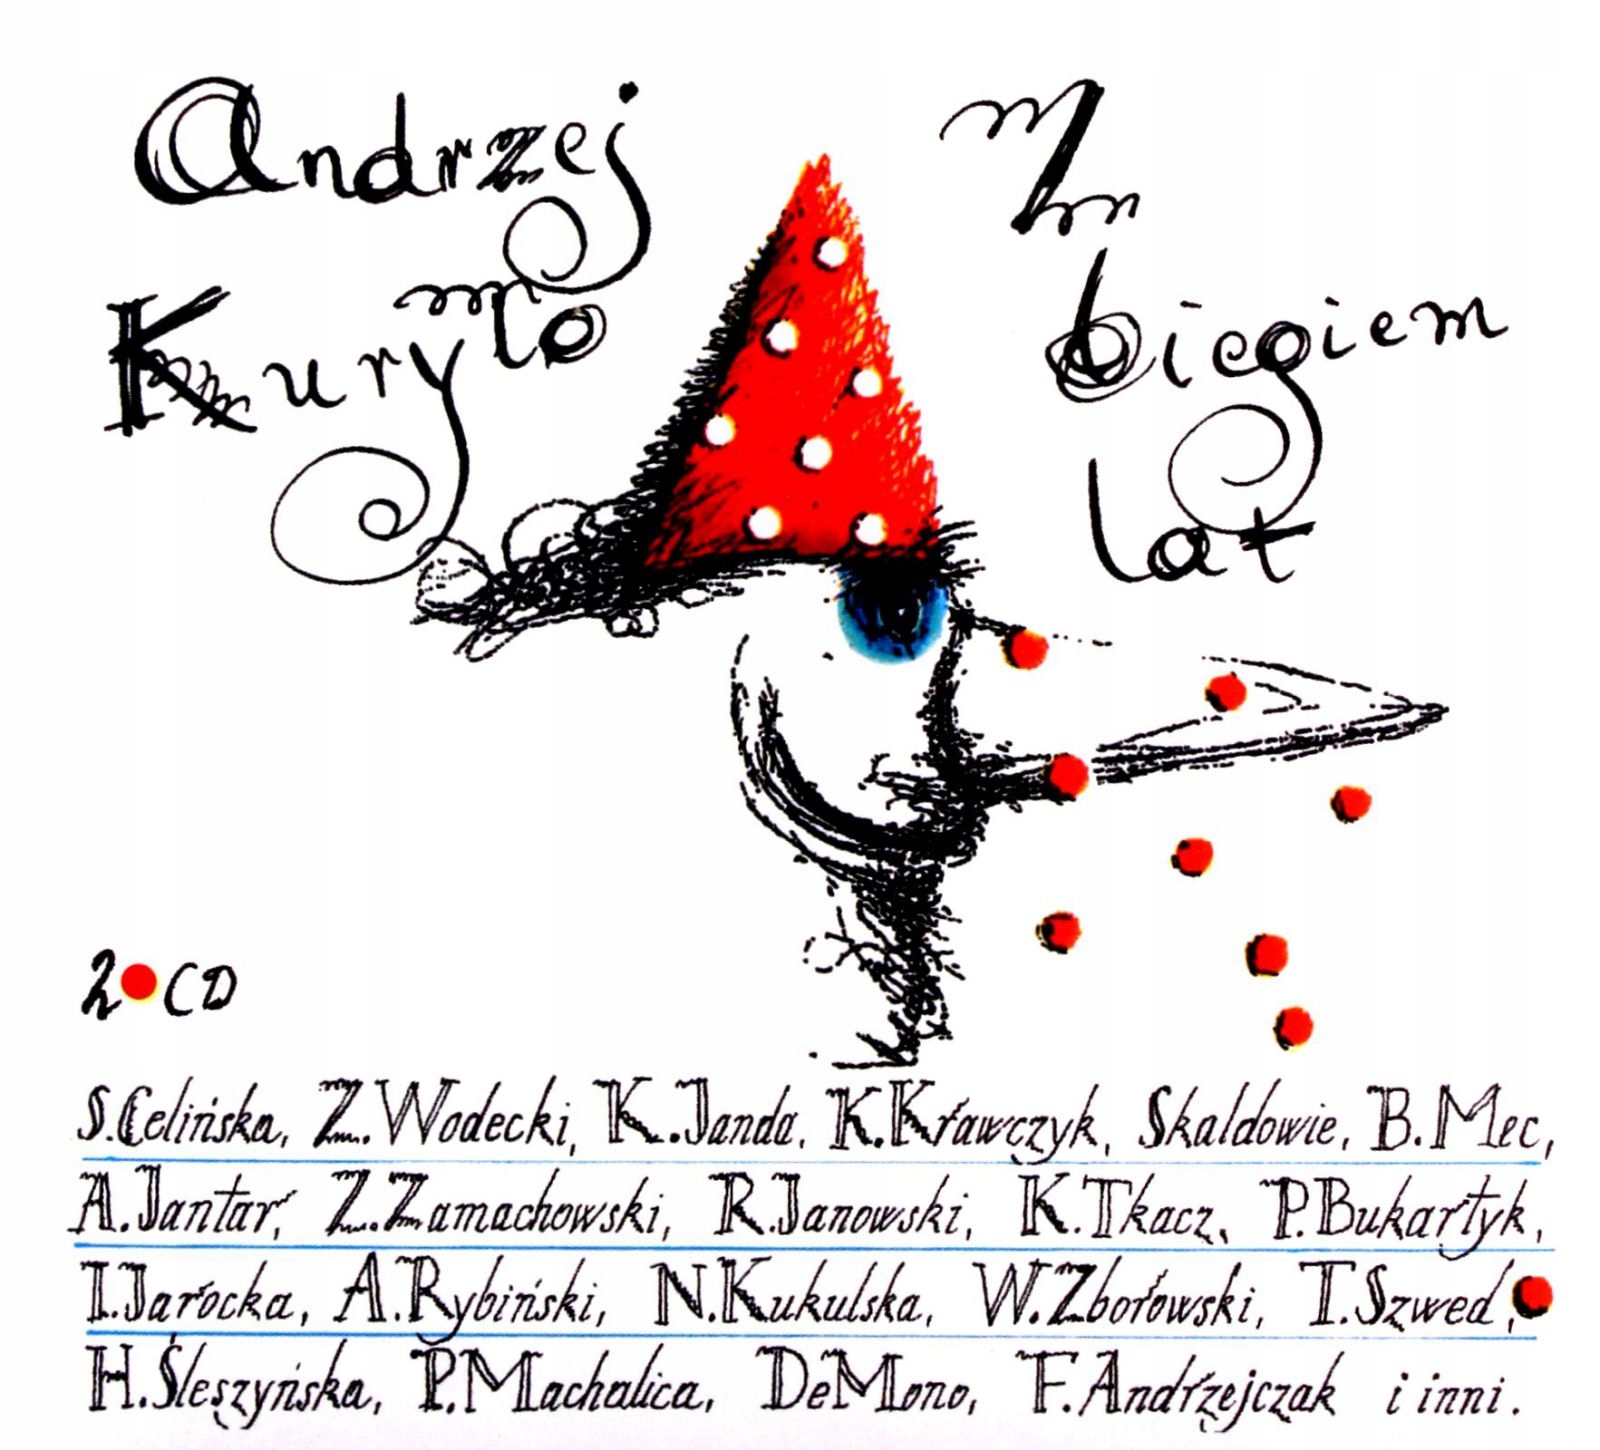 Andrzej
Kuryło
Z
biegiem
lat
2 CD
S.Celińska, Z.Wodecki, K.Janda, K.Krawczyk, Skaldowie, B.Mec,
A.Jantar, Z.Zamachowski, R.Janowski, K.Tkacz, P.Bukartyk,
I.Jarocka, A.Rybiński, N.Kukulska, W.Zborowski, T.Szwed,
H.Śleszyńska, P.Machalica, DeMono, F.Andrzejczak i inni.